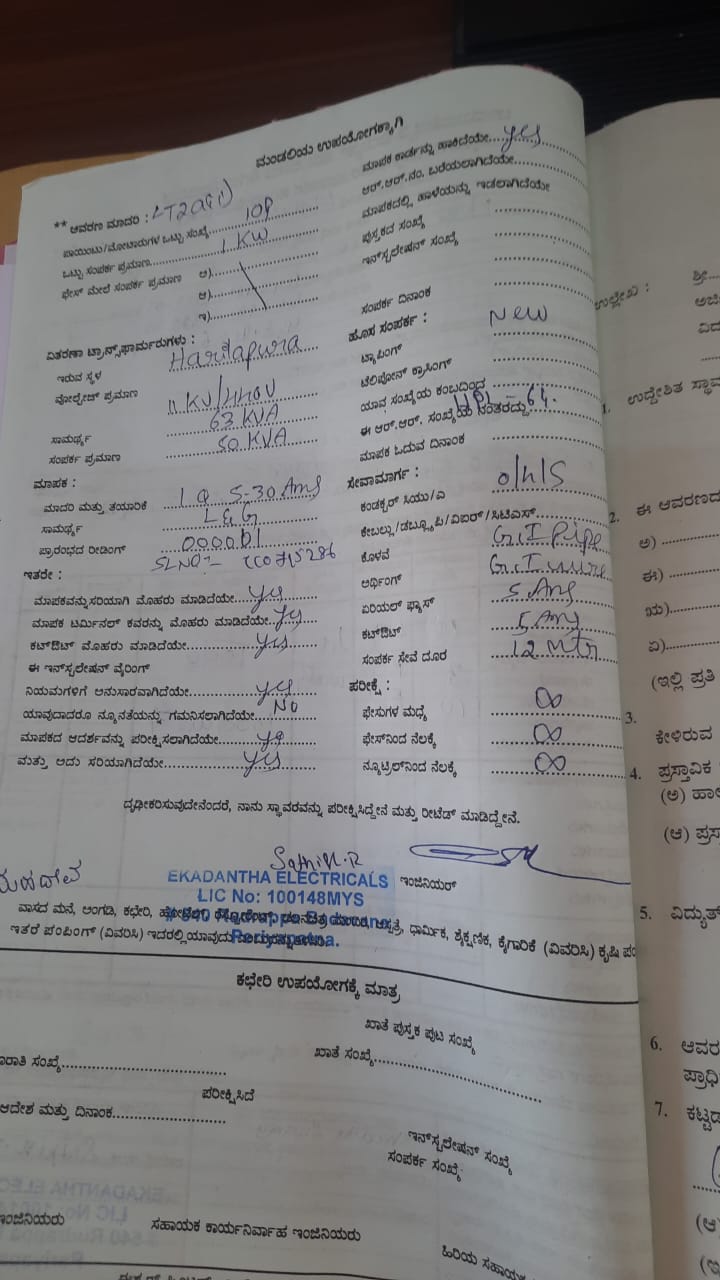 ಮಂಡಲಿಯ ಉಪಯೋಗಕ್ಕಾಗಿ
** ಆವರಣ ಮಾದರಿ : LT2a(i)
ಪಾಯಿಂಟು/ಮೋಟಾರುಗಳ ಒಟ್ಟು ಸಂಖ್ಯೆ 10P
ಒಟ್ಟು ಸಂಪರ್ಕ ಪ್ರಮಾಣ 1 KW
ಫೇಸ್ ಮೇಲೆ ಸಂಪರ್ಕ ಪ್ರಮಾಣ ಅ)
ಆ)
ಇ)
ವಿತರಣಾ ಟ್ರಾನ್ಸ್‌ಫಾರ್ಮರುಗಳು :
ಇರುವ ಸ್ಥಳ Haritapura
ವೋಲ್ಟೇಜ್ ಪ್ರಮಾಣ 11 KV/440V
ಸಾಮರ್ಥ್ಯ 63 KVA
ಸಂಪರ್ಕ ಪ್ರಮಾಣ 50 KVA
ಮಾಪಕ :
ಮಾದರಿ ಮತ್ತು ತಯಾರಿಕೆ 1 Q 5-30 Ams
ಸಾಮರ್ಥ್ಯ L&G
ಪ್ರಾರಂಭದ ರೀಡಿಂಗ್ 000001
SLNO:-
ಇತರೇ :
ಮಾಪಕವನ್ನು ಸರಿಯಾಗಿ ಮೊಹರು ಮಾಡಿದೆಯೇ yes
ಮಾಪಕ ಟರ್ಮಿನಲ್ ಕವರನ್ನು ಮೊಹರು ಮಾಡಿದೆಯೇ yes
ಕಟ್‌ಔಟ್ ಮೊಹರು ಮಾಡಿದೆಯೇ yes
ಈ ಇನ್‌ಸ್ಟಲೇಷನ್ ವೈರಿಂಗ್
ನಿಯಮಗಳಿಗೆ ಅನುಸಾರವಾಗಿದೆಯೇ yes
ಯಾವುದಾದರೂ ನ್ಯೂನತೆಯನ್ನು ಗಮನಿಸಲಾಗಿದೆಯೇ NO
ಮಾಪಕದ ಆದರ್ಶವನ್ನು ಪರೀಕ್ಷಿಸಲಾಗಿದೆಯೇ yes
ಮತ್ತು ಅದು ಸರಿಯಾಗಿದೆಯೇ yes
ಮಾಪಕ ಕಾರ್ಡನ್ನು ಹಾಕಿದೆಯೇ yes
ಆರ್.ಆರ್.ನಂ. ಬರೆಯಲಾಗಿದೆಯೇ
ಮಾಪಕದಲ್ಲಿ ಹಾಳೆಯನ್ನು ಇಡಲಾಗಿದೆಯೇ
ಪುಸ್ತಕದ ಸಂಖ್ಯೆ
ಇನ್‌ಸ್ಟಲೇಷನ್ ಸಂಖ್ಯೆ
ಸಂಪರ್ಕ ದಿನಾಂಕ
ಹೊಸ ಸಂಪರ್ಕ : New
ಟ್ಯಾಪಿಂಗ್
ಟೆಲಿಫೋನ್ ಕ್ರಾಸಿಂಗ್
ಯಾವ ಸಂಖ್ಯೆಯ ಕಂಬದಿಂದ
ಈ ಆರ್.ಆರ್. ಸಂಖ್ಯೆಯ ನಂತರದ್ದು HPL-64.
ಮಾಪಕ ಓದುವ ದಿನಾಂಕ
ಸೇವಾಮಾರ್ಗ : o/h/S
ಕಂಡಕ್ಟರ್ ಸಿಯು/ಎ
ಕೇಬಲ್ಲು/ಡಬ್ಲ್ಯೂಪಿ/ವಿಐಆರ್/ಸಿಟಿಎಸ್
ಕೊಳವೆ G.I Pipe
ಅರ್ಥಿಂಗ್ G.I wire
ಏರಿಯಲ್ ಫ್ಯೂಸ್ 5 Ams
ಕಟ್‌ಔಟ್ 5 Ams
ಸಂಪರ್ಕ ಸೇವೆ ದೂರ 12 Mtr
ಪರೀಕ್ಷೆ :
ಫೇಸುಗಳ ಮಧ್ಯೆ ∞
ಫೇಸ್‌ನಿಂದ ನೆಲಕ್ಕೆ ∞
ನ್ಯೂಟ್ರಲ್‌ನಿಂದ ನೆಲಕ್ಕೆ ∞
ದೃಢೀಕರಿಸುವುದೇನೆಂದರೆ, ನಾನು ಸ್ಥಾವರವನ್ನು ಪರೀಕ್ಷಿಸಿದ್ದೇನೆ ಮತ್ತು ರೀಟೆಡ್ ಮಾಡಿದ್ದೇನೆ.
ಇಂಜಿನಿಯರ್
EKADANTHA ELECTRICALS
LIC No: 100148MYS
Periyapatna.
ವಾಸದ ಮನೆ, ಅಂಗಡಿ, ಕಛೇರಿ, ಧಾರ್ಮಿಕ, ಶೈಕ್ಷಣಿಕ, ಕೈಗಾರಿಕೆ (ವಿವರಿಸಿ) ಕೃಷಿ ಪಂ
ಇತರೆ ಪಂಪಿಂಗ್ (ವಿವರಿಸಿ) ಇದರಲ್ಲಿ
ಕಛೇರಿ ಉಪಯೋಗಕ್ಕೆ ಮಾತ್ರ
ಖಾತೆ ಪುಸ್ತಕ ಪುಟ ಸಂಖ್ಯೆ
ಖಾತೆ ಸಂಖ್ಯೆ
ಪರೀಕ್ಷಿಸಿದೆ
ಆದೇಶ ಮತ್ತು ದಿನಾಂಕ
ಇನ್‌ಸ್ಟಲೇಷನ್ ಸಂಖ್ಯೆ
ಸಂಪರ್ಕ ಸಂಖ್ಯೆ
ಇಂಜಿನಿಯರು
ಸಹಾಯಕ ಕಾರ್ಯನಿರ್ವಾಹ ಇಂಜಿನಿಯರು
ಹಿರಿಯ ಸಹಾಯಕ
ಉಲ್ಲೇಖ : ಶ್ರೀ
1. ಉದ್ದೇಶಿತ ಸ್ಥಾವ
2. ಈ ಆವರಣದ
ಅ)
ಈ)
ಋ)
ಏ)
(ಇಲ್ಲಿ ಪ್ರತಿ
3. ಕೇಳಿರುವ
4. ಪ್ರಸ್ತಾವಿಕ
(ಅ) ಹಾಲಿ
(ಆ) ಪ್ರಸ್ತ
5. ವಿದ್ಯುತ್
6. ಆವರ
ಪ್ರಾಧಿ
7. ಕಟ್ಟಡ
(ಆ)